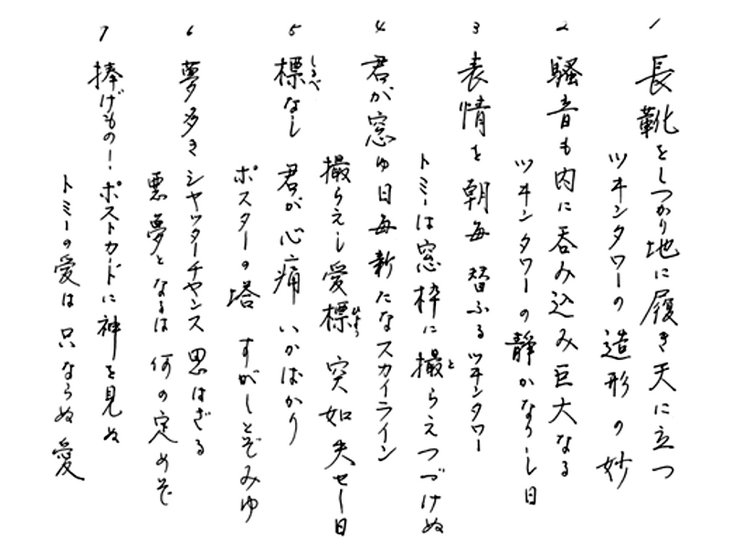 1 長靴をしつかり地に履き天に立つ
ツヰンタワーの造形の妙
2 騒音も内に呑み込み巨大なる
ツヰンタワーの静かなりし日
3 表情を朝毎替ふるツヰンタワー
トミーは窓枠に撮らえつづけぬ
4 君が窓ゆ日毎新たなスカイライン
撮らえし愛標突如失せし日
5 標なし君が心痛いかばかり
ポスターの塔すがしとぞみゆ
6 夢多きシャッターチャンス思はざる
悪夢となるは何の定めぞ
7 捧げもの!ポストカードに神を見ぬ
トミーの愛は只ならぬ愛